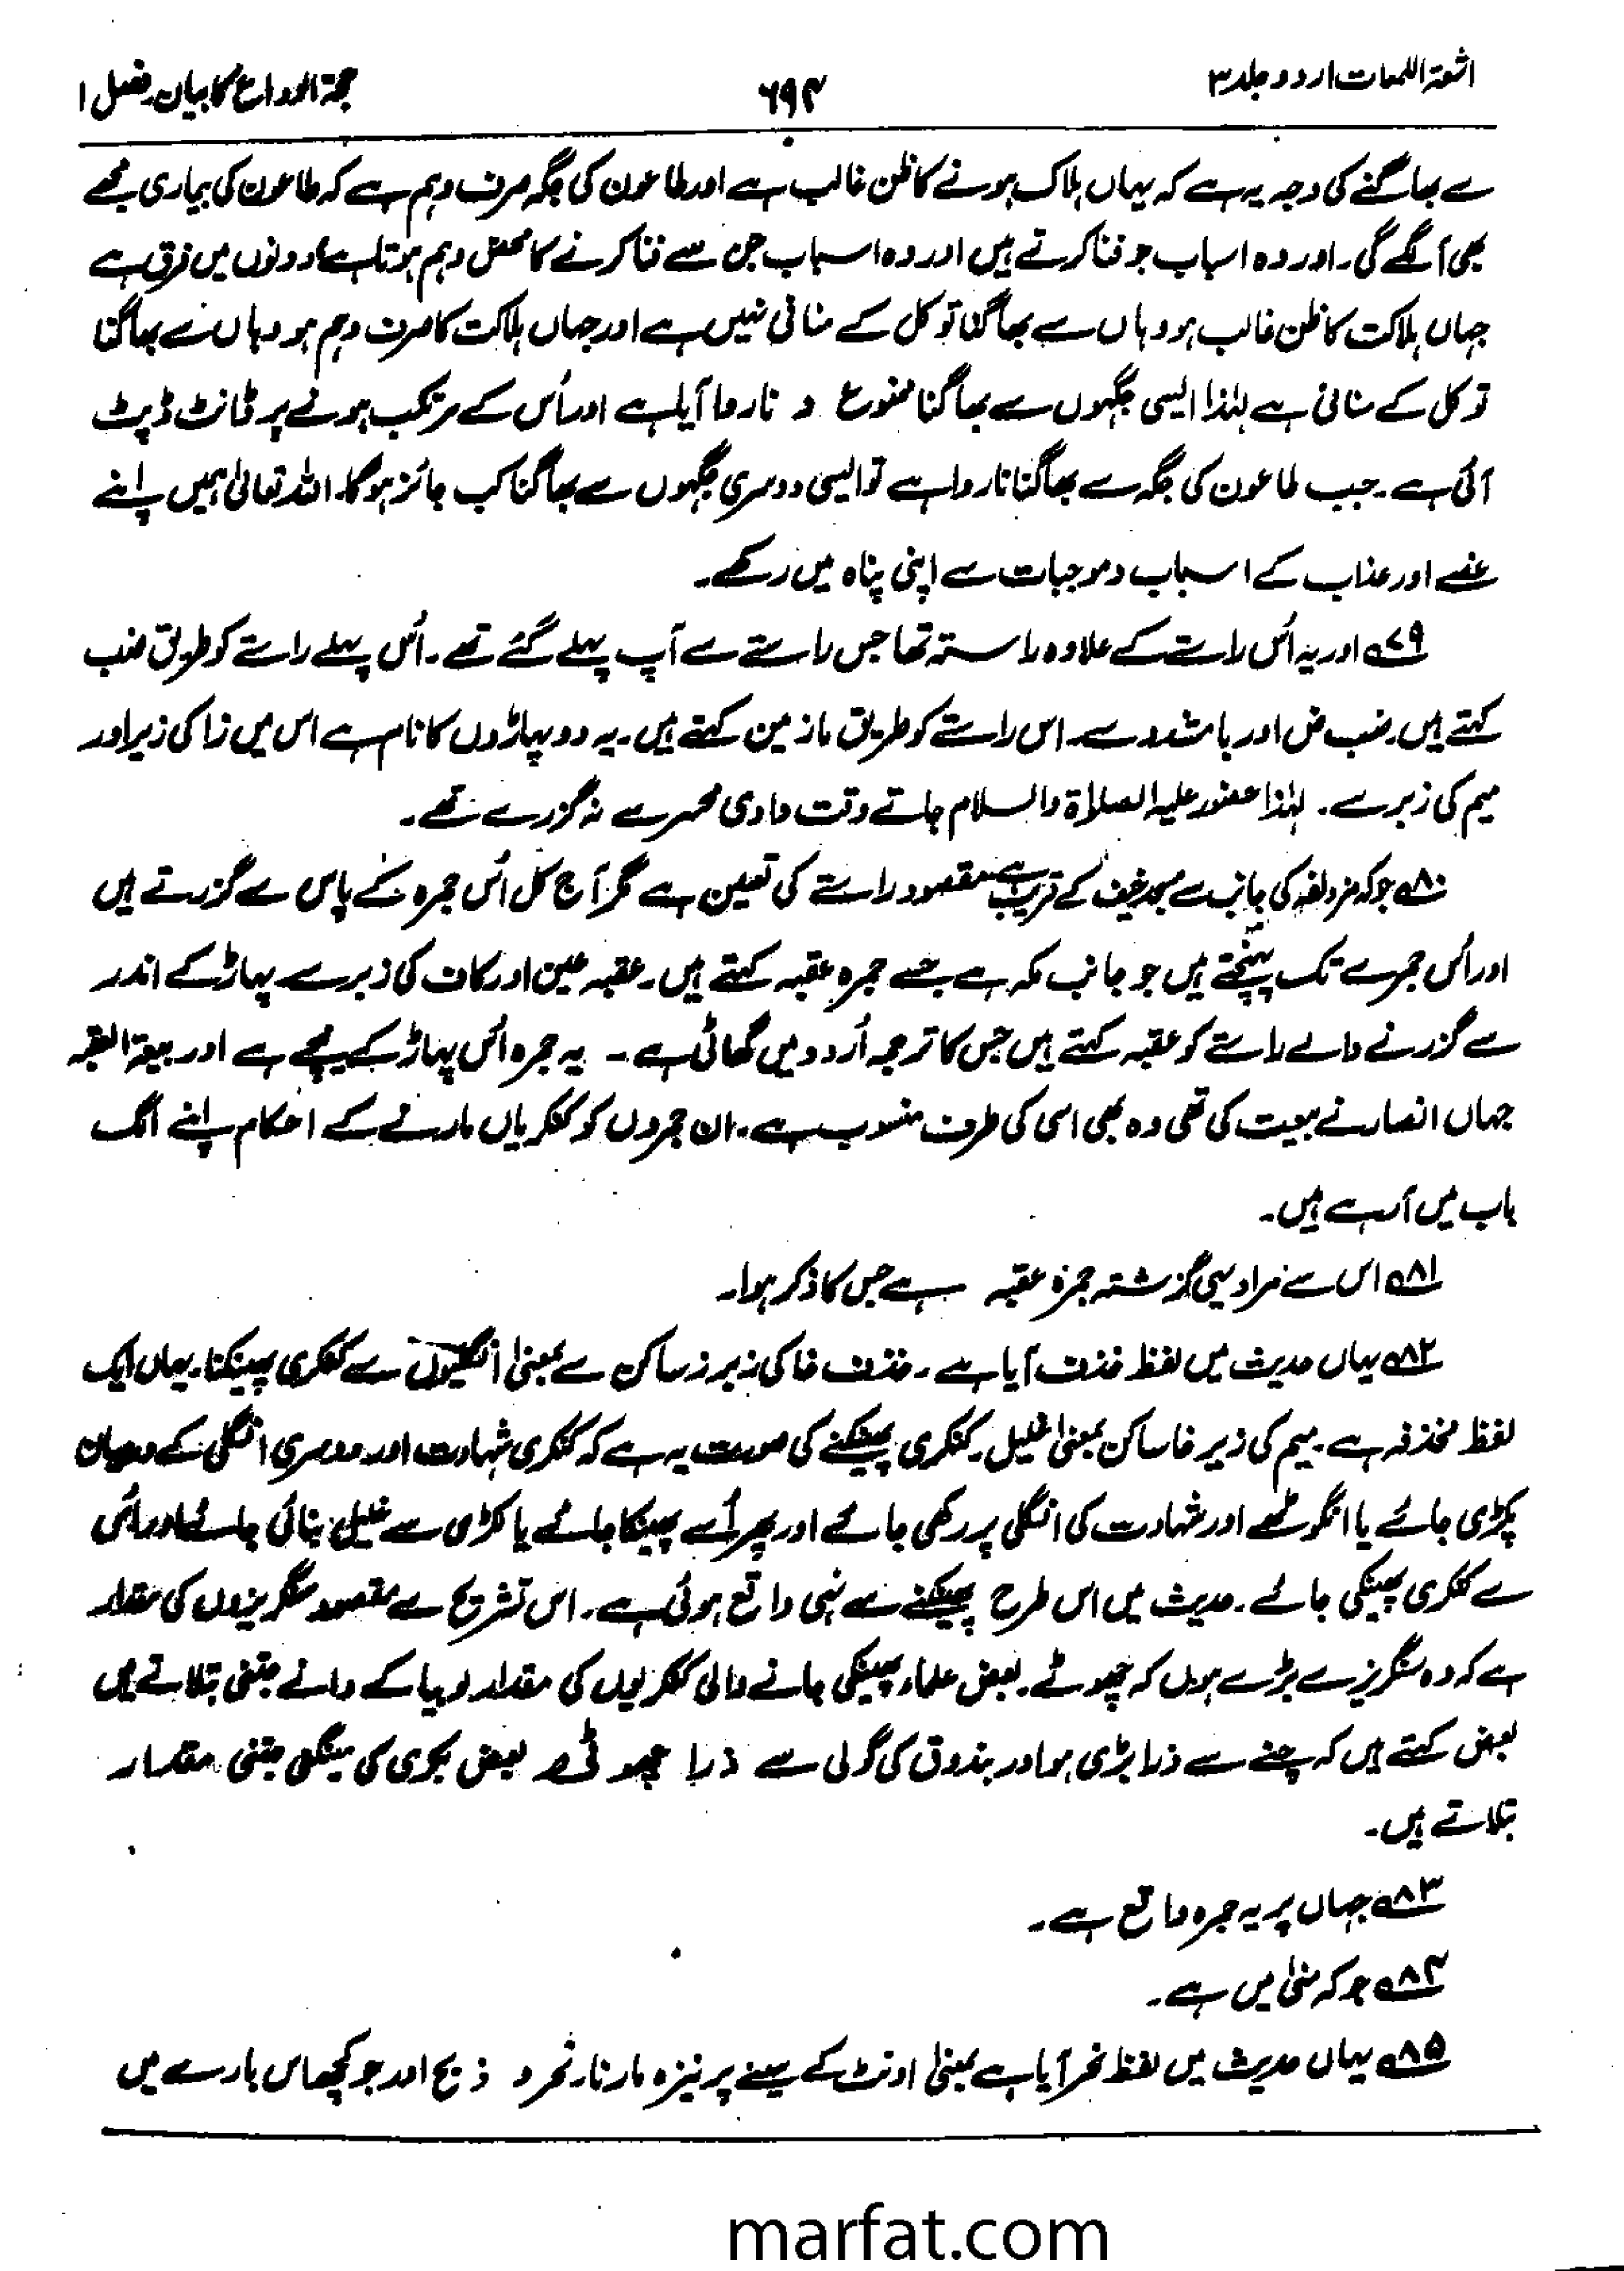 اشعۃ اللمعات اردو جلد ۳
۶۹۴
حجۃ الوداع کا بیان فصل ۱
سے بھاگنے کی وجہ یہ ہے کہ یہاں ہلاک ہونے کا ظن غالب ہے اور طاعون کی جگہ صرف وہم ہے کہ طاعون کی بیماری مجھے
بھی آلگے گی۔ اور وہ اسباب جو فنا کرتے ہیں اور وہ اسباب جن سے فنا کرنے کا محض وہم ہوتا ہے دونوں میں فرق ہے
جہاں ہلاکت کا ظن غالب ہو وہاں سے بھاگنا توکل کے منافی نہیں ہے اور جہاں ہلاکت کا صرف وہم ہو وہاں سے بھاگنا
توکل کے منافی ہے لہٰذا ایسی جگہوں سے بھاگنا ممنوع و ناروا آیا ہے اور اُس کے مرتکب ہونے پر ڈانٹ ڈپٹ
آئی ہے۔ جب طاعون کی جگہ سے بھاگنا ناروا ہے تو ایسی دوسری جگہوں سے بھاگنا کب جائز ہوگا۔ اللہ تعالیٰ ہمیں اپنے
غصے اور عذاب کے اسباب و موجبات سے اپنی پناہ میں رکھے۔
۷۹ اور یہ اُس راستے کے علاوہ راستہ تھا جس راستے سے آپ پہلے گئے تھے۔ اُس پہلے راستے کو طریق ضب
کہتے ہیں۔ ضب ض اور با مشدد سے۔ اس راستے کو طریق مازمین کہتے ہیں۔ یہ دو پہاڑوں کا نام ہے اس میں زا کی زیر اور
میم کی زبر ہے۔ لہٰذا حضور علیہ الصلاۃ والسلام جاتے وقت وادی محسر سے نہ گزرے تھے۔
۸۰ جو کہ مزدلفہ کی جانب سے مسجد خیف کے قریب ہے مقصود راستے کی تعیین ہے مگر آج کل اُس جمرہ کے پاس سے گزرتے ہیں
اور اُس جمرے تک پہنچتے ہیں جو جانب مکہ ہے جسے جمرہ عقبہ کہتے ہیں۔ عقبہ عین اور کاف کی زبر سے پہاڑ کے اندر
سے گزرنے والے راستے کو عقبہ کہتے ہیں جس کا ترجمہ اُردو میں گھاٹی ہے۔ یہ جمرہ اُس پہاڑ کے نیچے ہے اور بیعۃ العقبہ
جہاں انصار نے بیعت کی تھی وہ بھی اسی کی طرف منسوب ہے۔ ان جمروں کو کنکریاں مارنے کے احکام اپنے الگ
باب میں آرہے ہیں۔
۸۱ اس سے مراد یہی گزشتہ جمرہ عقبہ ہے جس کا ذکر ہوا۔
۸۲ یہاں حدیث میں لفظ خذف آیا ہے۔ خذف خا کی زبر ز ساکن سے بمعنیٰ انگلیوں سے کنکری پھینکنا۔ یہاں ایک
لفظ مخذفہ ہے۔ میم کی زیر خا ساکن بمعنیٰ غلیل۔ کنکری پھینکنے کی صورت یہ ہے کہ کنکری شہادت اور دوسری انگلی کے درمیان
پکڑی جائے یا انگوٹھے اور شہادت کی انگلی پر رکھی جائے اور پھر اُسے پھینکا جائے یا لکڑی سے غلیل بنائی جائے اور اُس
سے کنکری پھینکی جائے۔ حدیث میں اس طرح پھینکنے سے نہی واقع ہوئی ہے۔ اس تشریح سے مقصود سنگریزوں کی مقدار
ہے کہ وہ سنگریزے بڑے ہوں کہ چھوٹے۔ بعض علماء پھینکی جانے والی کنکریوں کی مقدار لوبیا کے دانے جتنی بتلاتے ہیں
بعض کہتے ہیں کہ چنے سے ذرا بڑی ہو اور بندوق کی گولی سے ذرا چھوٹی ہو بعض بکری کی مینگنی جتنی مقدار
بتلاتے ہیں۔
۸۳ جہاں پر یہ جمرہ واقع ہے۔
۸۴ جو کہ منیٰ میں ہے۔
۸۵ یہاں حدیث میں لفظ نحر آیا ہے بمعنیٰ اونٹ کے سینے پر نیزہ مارنا۔ نحر و ذبح اور جو کچھ اس بارے میں
marfat.com